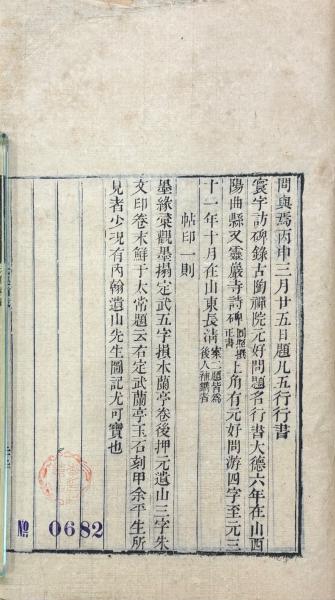 問與焉丙申三月廿五日題凡五行行書
寰宇訪碑錄古陶禪院元好問題名行書大德六年在山西
陽曲縣又靈巖寺詩碑圓照撰正書上角有元好問游四字至元三
十一年十月在山東長清案二題皆為後人補鐫者
帖印一則
墨緣彙觀墨搨定武五字損本蘭亭卷後押元遺山三字朱
文印卷末鮮于太常題云右定武蘭亭玉石刻甲余平生所
見者少況有內翰遺山先生圖記尤可寶也
№ 0682